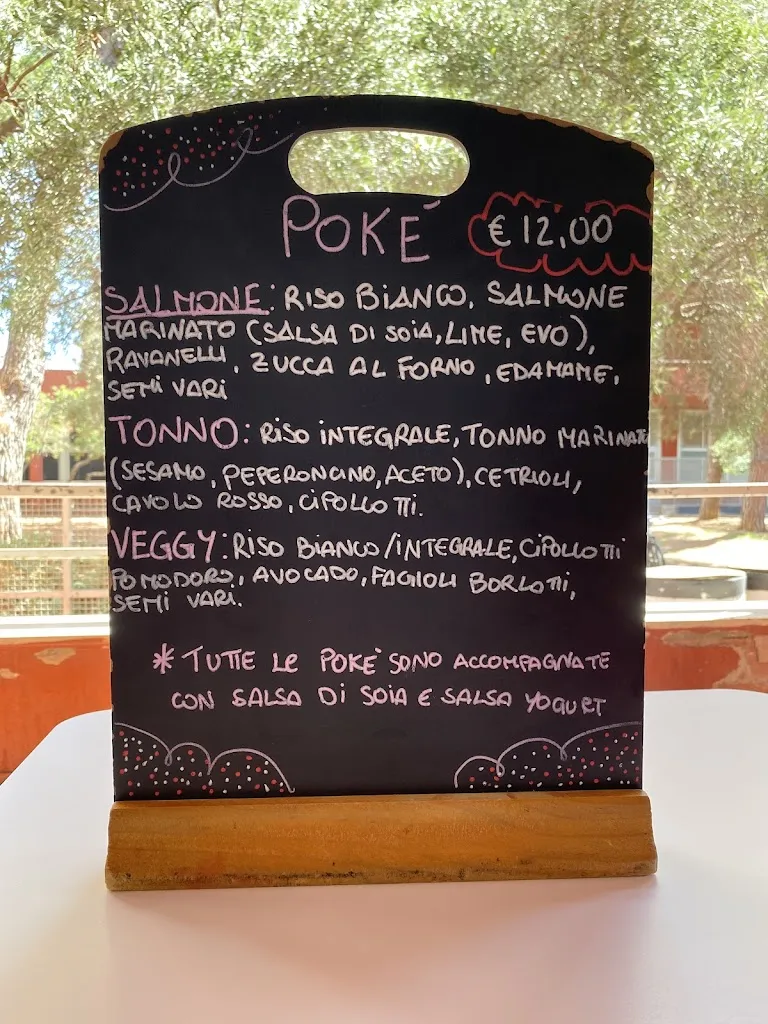 POKÉ
€ 12,00
SALMONE: RISO BIANCO, SALMONE
MARINATO (SALSA DI SOIA, LIME, EVO),
RAVANELLI, ZUCCA AL FORNO, EDAMAME,
SEMI VARI
TONNO: RISO INTEGRALE, TONNO MARINATO
(SESAMO, PEPERONCINO, ACETO), CETRIOLI,
CAVOLO ROSSO, CIPOLLOTTI.
VEGGY: RISO BIANCO/INTEGRALE, CIPOLLOTTI
POMODORO, AVOCADO, FAGIOLI BORLOTTI,
SEMI VARI.
* TUTTE LE POKÈ SONO ACCOMPAGNATE
CON SALSA DI SOIA E SALSA YOGURT